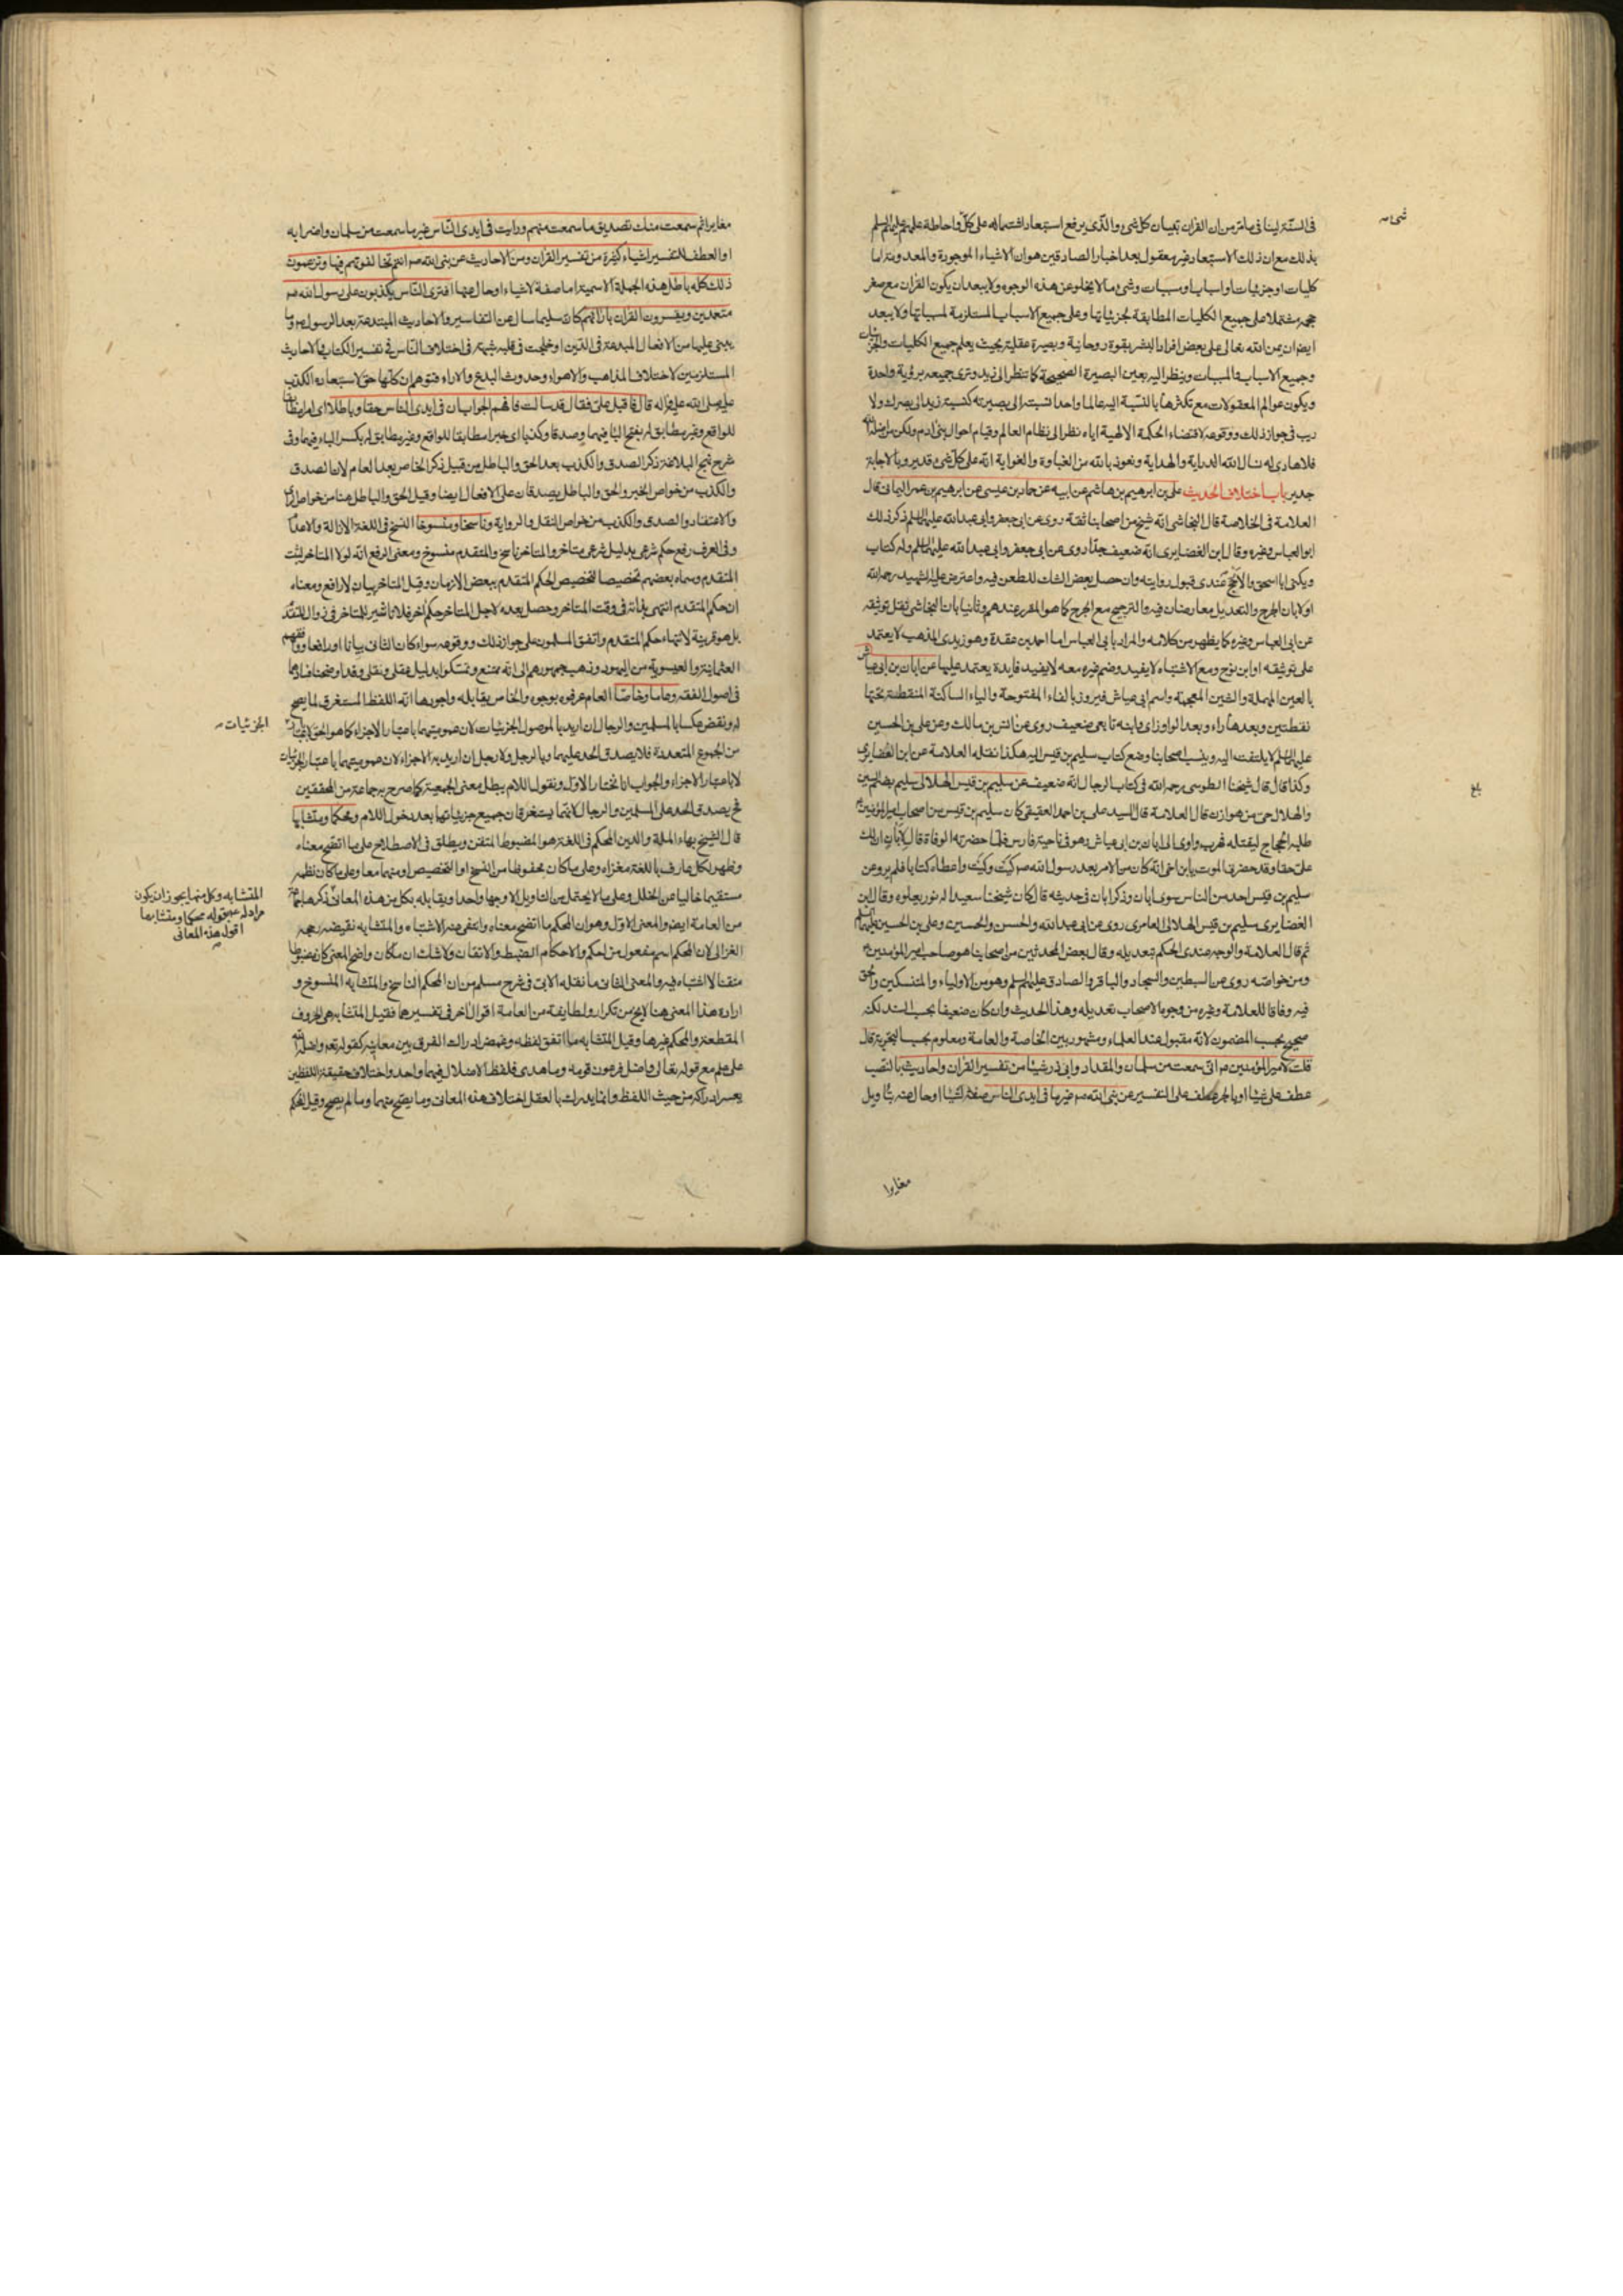 في السنة لينافي ما مر من ان القران تبيان كل شئ والذي يرفع استبعاد اشتماله على كل واحاطة علمهم عليهم السلم
بذلك مع ان ذلك الاستبعاد غير معقول بعد اخبار الصادقين هو ان الاشياء الموجودة والمعدومة اما
كليات او جزئيات او اسباب او مسببات وشئ ما لا يخلو عن هذه الوجوه ولا يبعد ان يكون القران مع صغر
حجمه مشتملا على جميع الكليات المطابقة لجزئياتها وعلى جميع الاسباب المستلزمة لمسبباتها ولا يبعد
ايضا ان يمن الله تعالى على بعض افراد البشر بقوة روحانية وبصيرة عقلية بحيث يعلم جميع الكليات والجزئيات
وجميع الاسباب والمسببات وينظر اليه بعين البصيرة الصحيحة كما تنظر الى زيد وترى جميعه برؤية واحدة
ويكون عوالم المعقولات مع تكثرها بالنسبة اليه عالما واحدا نسبته الى بصيرته كنسبة زيد الى بصرك ولا
ريب في جواز ذلك ووقوعه لاقتضاء الحكمة الالهية اياه نظرا الى نظام العالم وقيام احوال بني ادم ولكن من اضله الله
فلا هادي له نسال الله الدراية والهداية ونعوذ بالله من الغباوة والغواية انه على كل شئ قدير وبالاجابة
جدير باب اختلاف الحديث علي بن ابرهيم بن هاشم عن ابيه عن حماد بن عيسى عن ابرهيم بن عمر اليماني قال
العلامة في الخلاصة قال النجاشي انه شيخ من اصحابنا ثقة روى عن ابي جعفر وابي عبد الله عليهما السلم ذكر ذلك
ابو العباس وغيره وقال ابن الغضايري انه ضعيف جدا روى عن ابي جعفر وابي عبد الله عليهما السلم وله كتاب
ويكنى ابا اسحق والارجح عندي قبول روايته وان حصل بعض الشك للطعن فيه واعترض عليه الشهيد رحمه الله
اولا بان الجرح والتعديل معارضان فيه والترجيح مع الجرح كما هو المقرر عندهم وثانيا بان النجاشي نقل توثيقه
عن ابي العباس وغيره كما يظهر من كلامه والمراد بابي العباس اما احمد بن عقدة وهو زيدي المذهب لا يعتمد
على توثيقه او ابن نوح ومع الاشتباه لا يفيد وضم غيره معه لا يفيد فايدة يعتمد عليها عن ابان بن ابي عياش
بالعين المهملة والشين المعجمة واسم ابي عياش فيروز بالفاء المفتوحة والياء الساكنة المنقطة تحتها
نقطتين وبعدها راء وبعد الواو زاي وابنه تابعي ضعيف روى عن انس بن مالك وعن علي بن الحسين
عليهما السلم لا يلتفت اليه وينسب اصحابنا وضع كتاب سليم بن قيس اليه هكذا نقله العلامة عن ابن الغضايري
وكذا قال قال شيخنا الطوسي رحمه الله في كتاب الرجال انه ضعيف عن سليم بن قيس الهلالي سليم بضم السين
والهلال حي من هوازن قال العلامة قال السيد علي بن احمد العقيقي كان سليم بن قيس من اصحاب امير المؤمنين
طلبه الحجاج ليقتله فهرب واوى الى ابان بن ابي عياش وهو في ناحية فارس فلما حضرته الوفاة قال لابان ان لك
علي حقا وقد حضرني الموت يا ابن اخي انه كان من الامر بعد رسول الله ص كيت وكيت واعطاه كتابا فلم يرو عن
سليم بن قيس احد من الناس سوى ابان وذكر ابان في حديثه قال كان شيخنا سعيدا له نور يعلوه وقال ابن
الغضايري سليم بن قيس الهلالي العامري روى عن ابي عبد الله والحسن والحسين وعلي بن الحسين عليهم السلم
ثم قال العلامة والوجه عندي الحكم بتعديله وقال بعض المحدثين من اصحابنا هو صاحب امير المؤمنين
ومن خواصه روى عن السبطين والسجاد والباقر والصادق عليهم السلم وهو من الاولياء والمتنسكين والحق
فيه وفاقا للعلامة وغيره من وجوه الاصحاب تعديله وهذا الحديث وان كان ضعيفا بحسب السند لكنه
صحيح بحسب المضمون لانه مقبول عند العلماء ومشهور بين الخاصة والعامة ومعلوم بحسب التجربة قال
قلت لامير المؤمنين ع اني سمعت من سلمان والمقداد وابي ذر شيئا من تفسير القران واحاديث بالنصب
عطف على شيئا او بالجر عطف على التفسير عن نبي الله ص غير ما في ايدي الناس صفة لشيئا او حال عنه بتاويل
مغايرا
شئ
بلغ
مغايرا ثم سمعت منك تصديق ما سمعت منهم ورايت في ايدي الناس غير ما سمعت من سلمان واضرابه
او العطف للتفسير اشياء كثيرة من تفسير القران ومن الاحاديث عن نبي الله ص انتم تخالفونهم فيها وتزعمون
ذلك كله باطل هذه الجملة الاسمية اما صفة لاشياء او حال عنها افترى الناس يكذبون على رسول الله ص
متعمدين ويفسرون القران بارائهم كان سليما سال عن التفاسير والاحاديث المبتدعة بعد الرسول ص وما
يبتني عليها من الافعال المبدعة في الدين او خلجت في قلبه شبهة في اختلاف الناس في تفسير الكتاب والاحاديث
المستلزمين لاختلاف المذاهب والاهواء وحدوث البدع والاراء فتوهم ان كلها حق لاستبعاده الكذب
عليه صلى الله عليه واله قال فاقبل علي فقال قد سالت فافهم الجواب ان في ايدي الناس حقا وباطلا اي امرا مطابقا
للواقع وغير مطابق له بفتح الباء فيهما وصدقا وكذبا اي خبرا مطابقا للواقع وغير مطابق له بكسر الباء فيهما وفي
شرح نهج البلاغة ذكر الصدق والكذب بعد الحق والباطل من قبيل ذكر الخاص بعد العام لان الصدق
والكذب من خواص الخبر والحق والباطل يصدقان على الافعال ايضا وقيل الحق والباطل هنا من خواص الراي
والاعتقاد والصدق والكذب من خواص النقل والرواية وناسخا ومنسوخا النسخ في اللغة الازالة والاعدام
وفي العرف رفع حكم شرعي بدليل شرعي متاخر والمتاخر ناسخ والمتقدم منسوخ ومعنى الرفع انه لولا المتاخر لثبت
المتقدم وسماه بعضهم تخصيصا لتخصيص الحكم المتقدم ببعض الازمان وقيل المتاخر بيان لا رافع ومعناه
ان حكم المتقدم انتهى بذاته في وقت المتاخر وحصل بعده لاجل المتاخر حكم اخر فلا تاثير للمتاخر في زوال المتقدم
بل هو قرينة لانتهاء حكم المتقدم واتفق المسلمون على جواز ذلك ووقوعه سواء كان الثاني بيانا او رافعا ووافقهم
العثمانية والعيسوية من اليهود وذهب جمهورهم الى انه ممتنع وتمسكوا بدليل عقلي ونقلي وقد اوضحنا فسادهما
في اصول الفقه وعاما وخاصا العام عرفوه بوجوه والخاص يقابله واجودها انه اللفظ المستغرق لما يصلح
له ونقض عكسا بالمسلمين والرجال ان اريد بالموصول الجزئيات لان عمومهما باعتبار الاجزاء كما هو الحق
من الجموع المتعددة فلا يصدق الحد عليهما وبالرجل ولا رجل ان اريد به الاجزاء لان عموميتهما باعتبار الجزئيات
لا باعتبار الاجزاء والجواب انا نختار الاول ونقول اللام يبطل معنى الجمعية كما صرح به جماعة من المحققين
فح يصدق الحد على المسلمين والرجال لانهما يستغرقان جميع جزئياتهما بعد دخول اللام ومحكما ومتشابها
قال الشيخ بهاء الملة والدين المحكم في اللغة هو المضبوط المتقن ويطلق في الاصطلاح على ما اتضح معناه
وظهر لكل عارف باللغة مغزاه وعلى ما كان محفوظا من النسخ او التخصيص او منهما معا وعلى ما كان نظمه
مستقيما خاليا عن الخلل وعلى ما لا يحتمل من التاويل الا وجها واحدا ويقابله بكل من هذه المعاني ذكرها جماعة
من العامة ايضا والمعنى الاول وهو ان المحكم ما اتضح معناه وانتفى عنه الاشتباه والمتشابه نقيضه رجحه
الغزالي لان المحكم اسم مفعول من احكم والاحكام الضبط والاتقان ولا شك ان ما كان واضح المعنى كان مضبوطا
متقنا لا اشتباه فيه والمعنى الثاني ما نقله الابي في شرح مسلم من ان المحكم الناسخ والمتشابه المنسوخ و
ارادة هذا المعنى هنا لا يخ من تكرار ولطايفة من العامة اقوال اخر في تفسيرهما فقيل المتشابه هي الحروف
المقطعة والمحكم غيرها وقيل المتشابه ما اتفق لفظه وغمض ادراك الفرق بين معانيه كقوله تعم واضله الله
على علم مع قوله تعالى واضل فرعون قومه وما هدى فلفظ الاضلال فيهما واحد واختلاف حقيقة اللفظين
يعسر ادراكه من حيث اللفظ وانما يدرك بالعقل اختلاف هذه المعاني وما يصح منهما وما لم يصح وقيل المحكم
الجزئيات
المتشابه وكل منهما يجوز ان يكون
مرادا من قوله محكما ومتشابها
اقول هذه المعاني